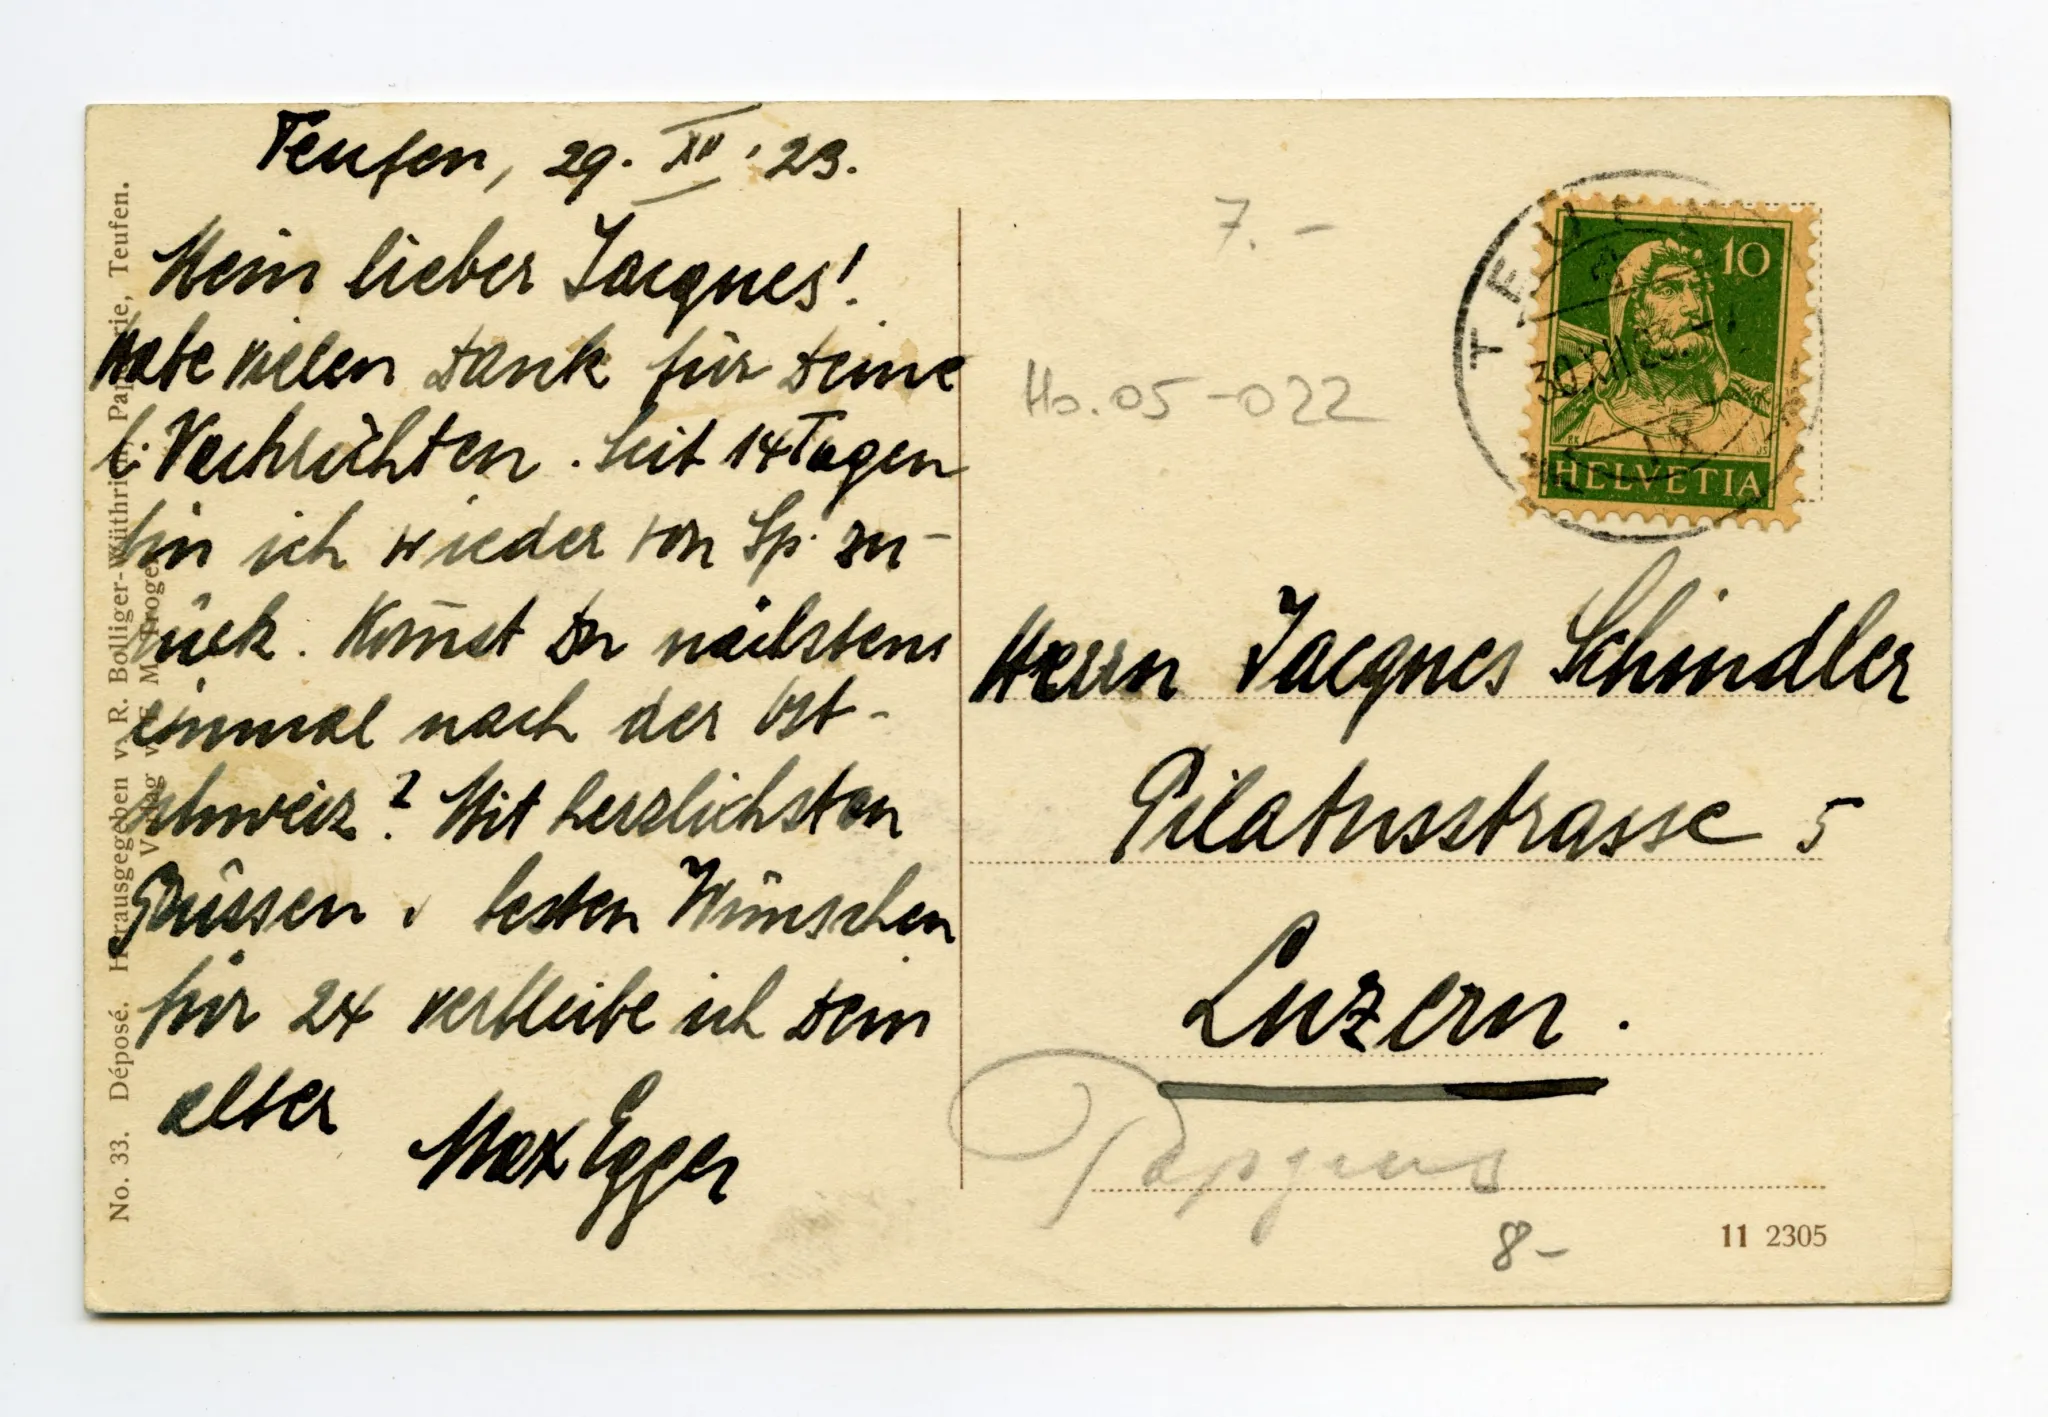 Teufen, 29. XII. 23.
Mein lieber Jacques!
Habe vielen Dank für Deine
l. Nachrichten. Seit 14 Tagen
bin ich wieder von Sp. zu-
rück. Kom̄st Du nächstens
einmal nach der Ost-
schweiz? Mit herzlichsten
Grüssen u. besten Wünschen
für 24 verbleibe ich Dein
alter
Max Egger
No. 33. Déposé. Herausgegeben v. R. Bolliger-Wüthrich, Papeterie, Teufen.
Verlag v. E. M. Troger
7.-
Ho. 05-022
TEUFEN
30.XII.23.
10
HELVETIA
Herrn Jacques Schindler
Pilatusstrasse 5
Luzern.
8-
11 2305